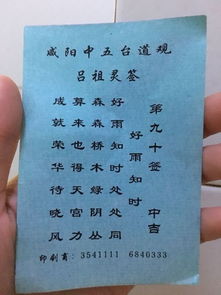 咸阳中五台道观
吕祖灵签
第九十签 中吉
好雨知时
好雨知时处处同
森森桥木缘阴丛
算来也得天宫力
成就荣华待晓风
印刷商：3541111 6840333